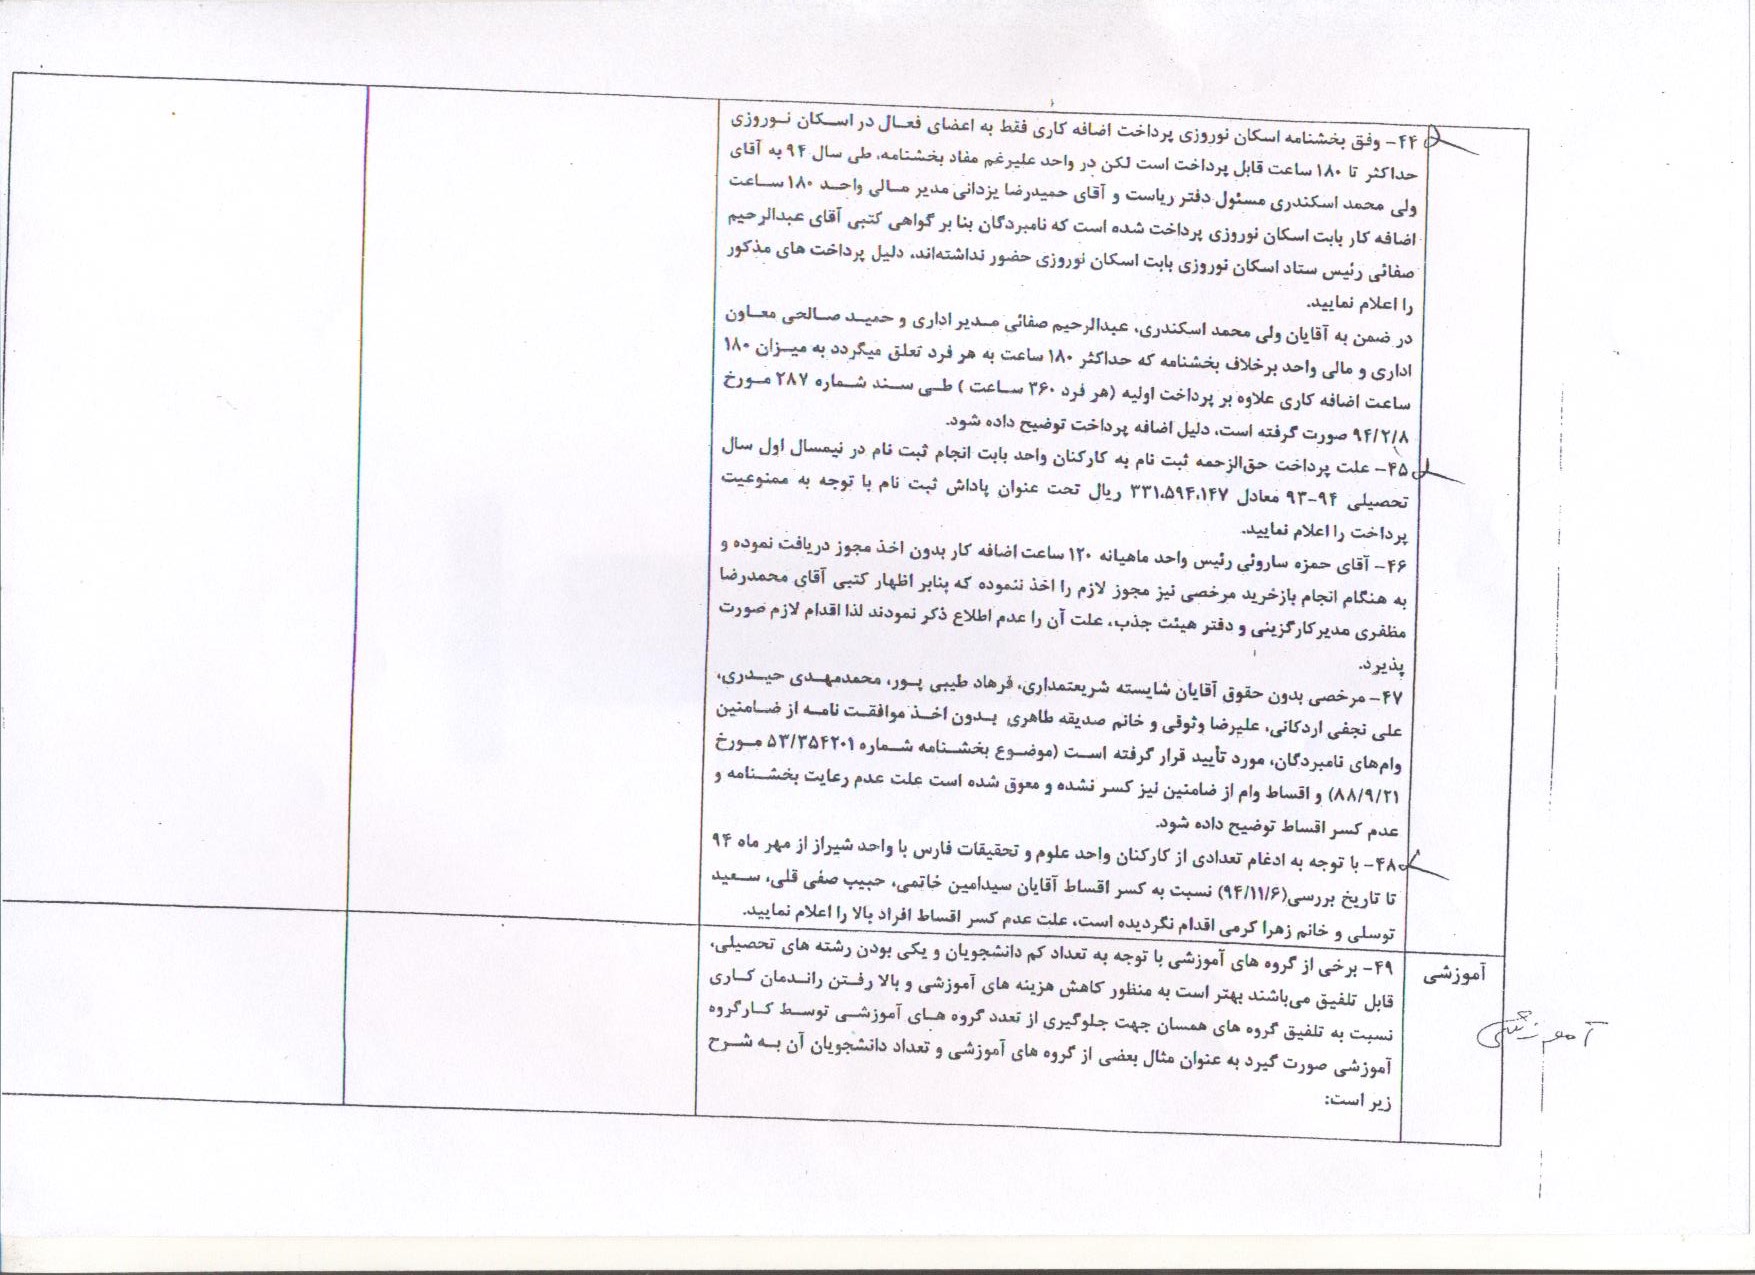 ۴۴- وفق بخشنامه اسکان نوروزی پرداخت اضافه کاری فقط به اعضای فعال در اسکان نوروزی
حداکثر تا ۱۸۰ ساعت قابل پرداخت است لکن در واحد علیرغم مفاد بخشنامه، طی سال ۹۴ به آقای
ولی محمد اسکندری مسئول دفتر ریاست و آقای حمیدرضا یزدانی مدیر مالی واحد ۱۸۰ ساعت
اضافه کار بابت اسکان نوروزی پرداخت شده است که نامبردگان بنا بر گواهی کتبی آقای عبدالرحیم
صفائی رئیس ستاد اسکان نوروزی بابت اسکان نوروزی حضور نداشته‌اند، دلیل پرداخت های مذکور
را اعلام نمایید.
در ضمن به آقایان ولی محمد اسکندری، عبدالرحیم صفائی مدیر اداری و حمید صالحی معاون
اداری و مالی واحد برخلاف بخشنامه که حداکثر ۱۸۰ ساعت به هر فرد تعلق میگردد به میزان ۱۸۰
ساعت اضافه کاری علاوه بر پرداخت اولیه (هر فرد ۳۶۰ ساعت ) طی سند شماره ۲۸۷ مورخ
۹۴/۲/۸ صورت گرفته است، دلیل اضافه پرداخت توضیح داده شود.
۴۵- علت پرداخت حق‌الزحمه ثبت نام به کارکنان واحد بابت انجام ثبت نام در نیمسال اول سال
تحصیلی ۹۴-۹۳ معادل ۳۳۱،۵۹۴،۱۴۷ ریال تحت عنوان پاداش ثبت نام با توجه به ممنوعیت
پرداخت را اعلام نمایید.
۴۶- آقای حمزه ساروئی رئیس واحد ماهیانه ۱۲۰ ساعت اضافه کار بدون اخذ مجوز دریافت نموده و
به هنگام انجام بازخرید مرخصی نیز مجوز لازم را اخذ ننموده که بنابر اظهار کتبی آقای محمدرضا
مظفری مدیرکارگزینی و دفتر هیئت جذب، علت آن را عدم اطلاع ذکر نمودند لذا اقدام لازم صورت
پذیرد.
۴۷- مرخصی بدون حقوق آقایان شایسته شریعتمداری، فرهاد طیبی پور، محمدمهدی حیدری،
علی نجفی اردکانی، علیرضا وثوقی و خانم صدیقه طاهری بدون اخذ موافقت نامه از ضامنین
وام‌های نامبردگان، مورد تأیید قرار گرفته است (موضوع بخشنامه شماره ۵۳/۳۵۴۲۰۱ مورخ
۸۸/۹/۲۱) و اقساط وام از ضامنین نیز کسر نشده و معوق شده است علت عدم رعایت بخشنامه و
عدم کسر اقساط توضیح داده شود.
۴۸- با توجه به ادغام تعدادی از کارکنان واحد علوم و تحقیقات فارس با واحد شیراز از مهر ماه ۹۴
تا تاریخ بررسی(۹۴/۱۱/۶) نسبت به کسر اقساط آقایان سیدامین خاتمی، حبیب صفی قلی، سعید
توسلی و خانم زهرا کرمی اقدام نگردیده است، علت عدم کسر اقساط افراد بالا را اعلام نمایید.
آموزشی
۴۹- برخی از گروه های آموزشی با توجه به تعداد کم دانشجویان و یکی بودن رشته های تحصیلی،
قابل تلفیق می‌باشند بهتر است به منظور کاهش هزینه های آموزشی و بالا رفتن راندمان کاری
نسبت به تلفیق گروه های همسان جهت جلوگیری از تعدد گروه های آموزشی توسط کارگروه
آموزشی صورت گیرد به عنوان مثال بعضی از گروه های آموزشی و تعداد دانشجویان آن به شرح
زیر است:
آموزشی